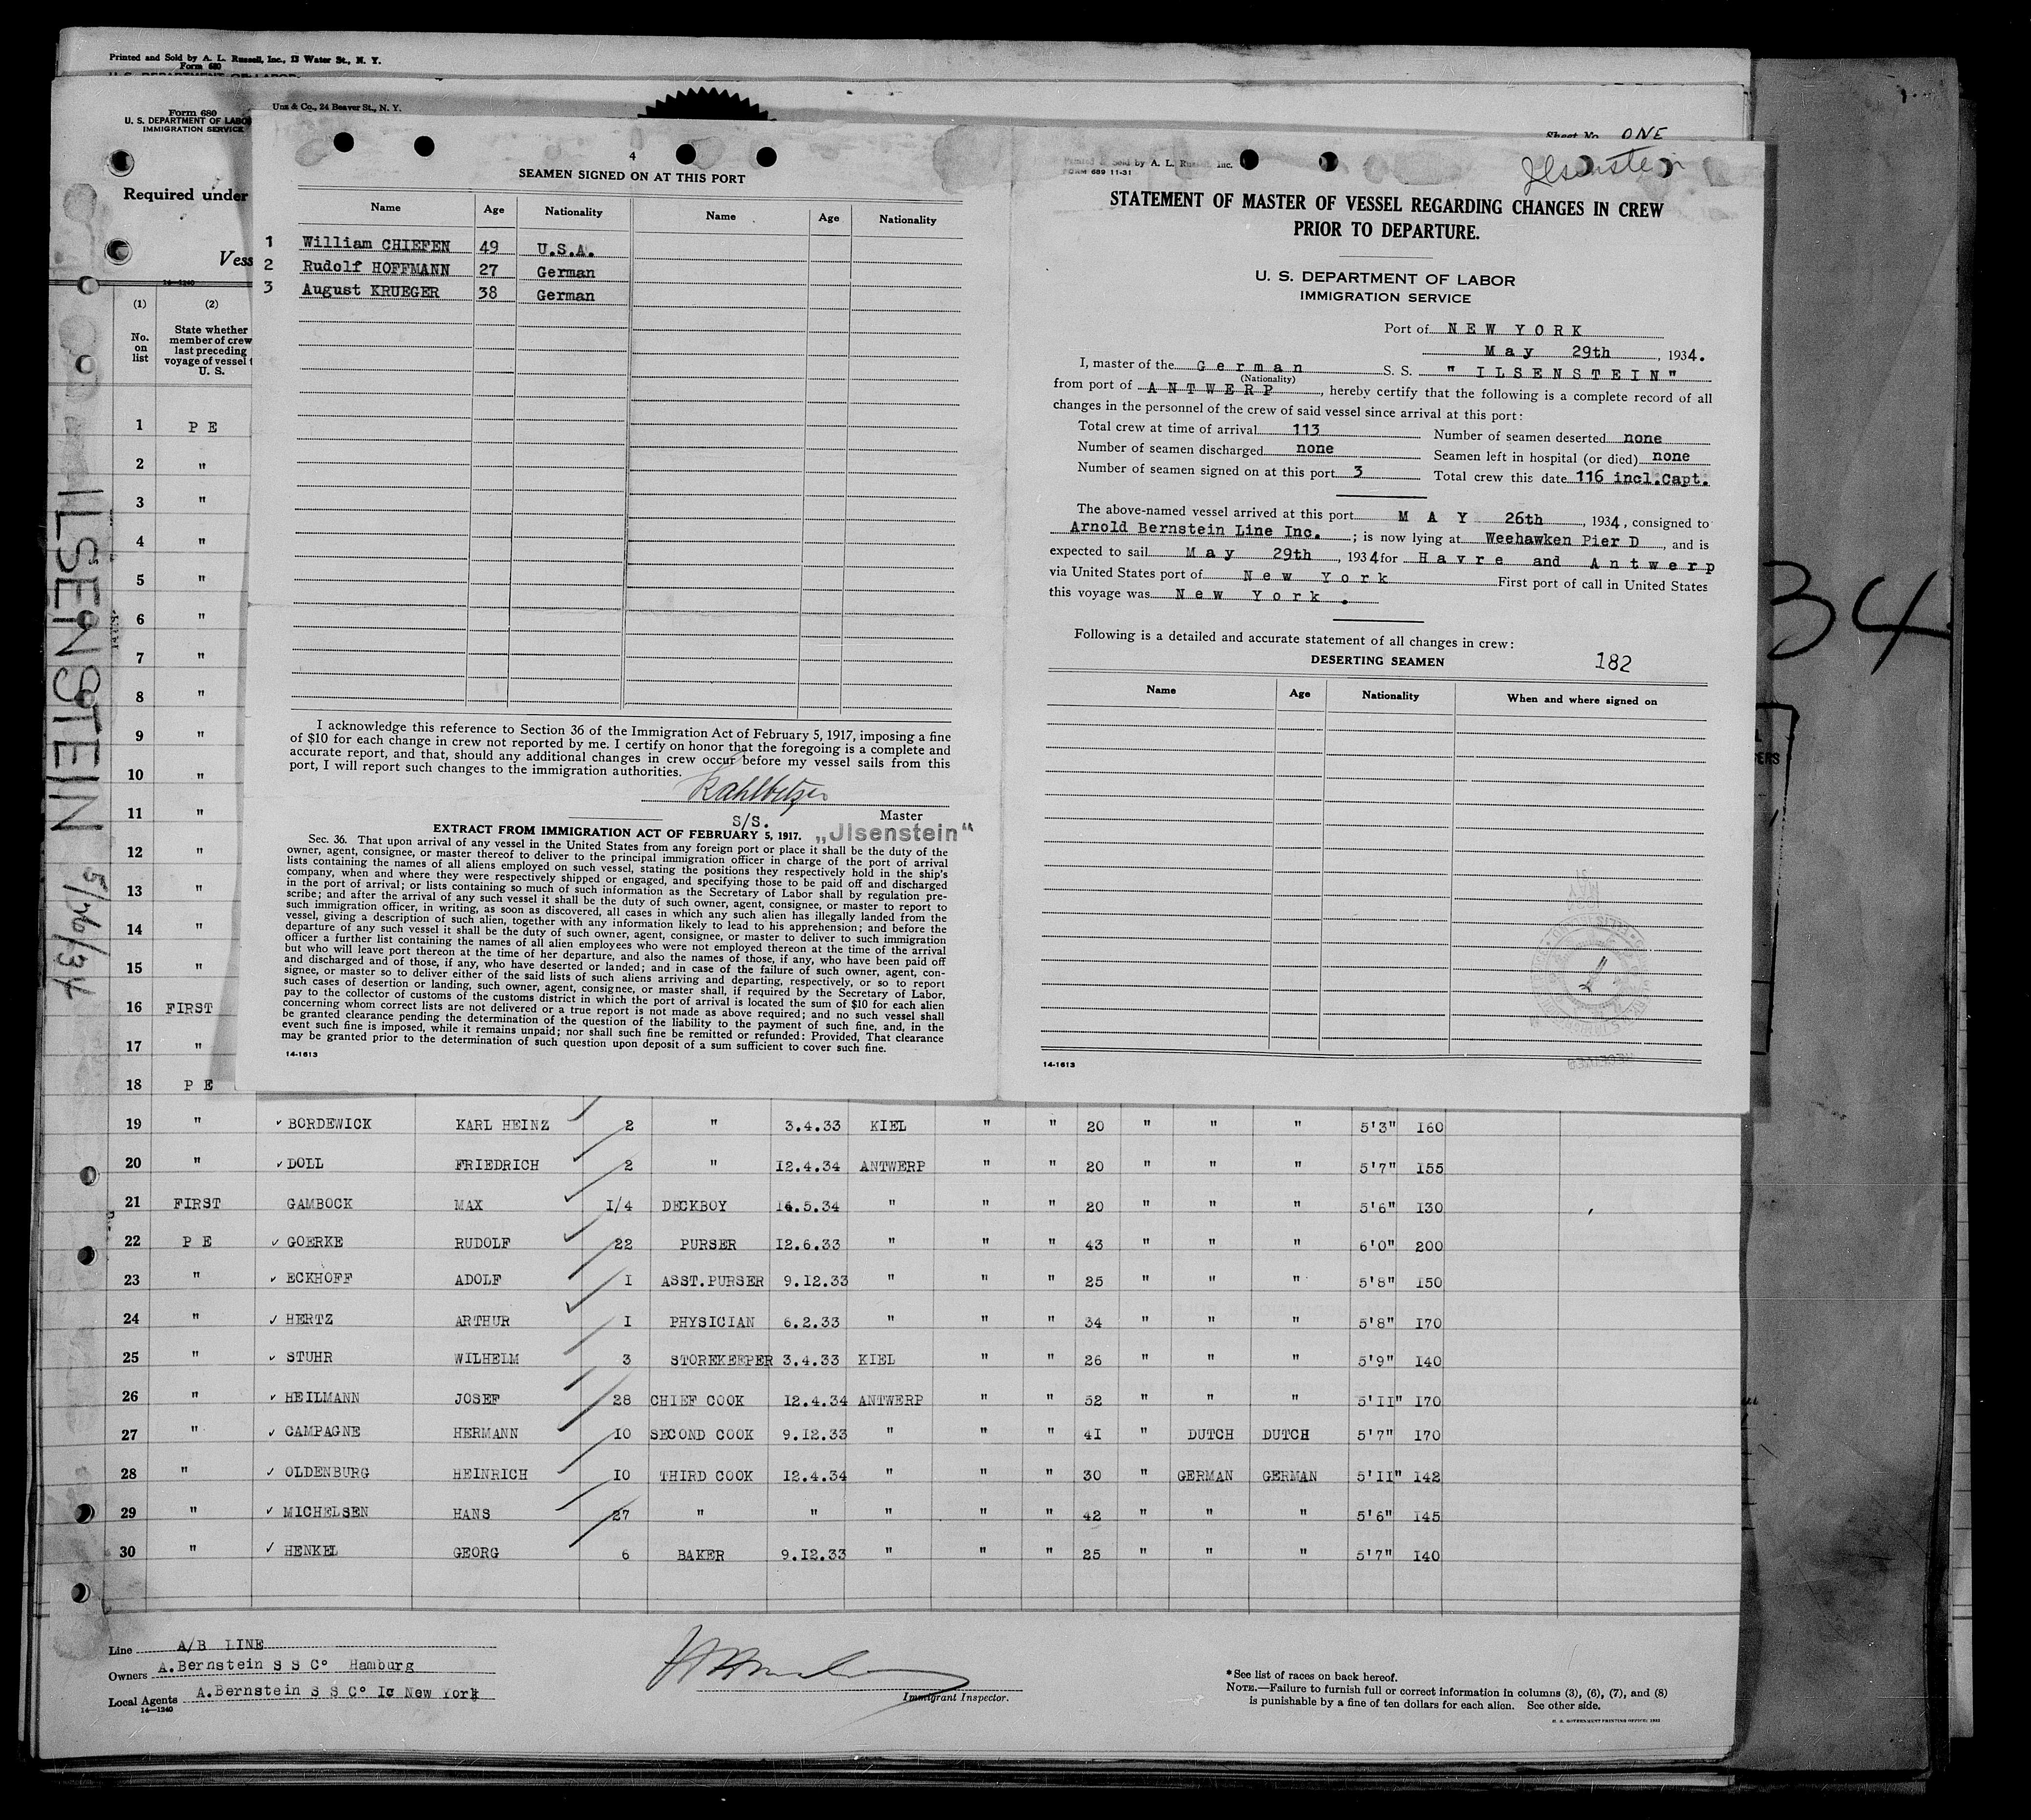 Printed and Sold by A. L. Russell, Inc., 13 Water St., N. Y.
Form 680
U. S. DEPARTMENT OF LABOR
Form 680
Unz & Co., 24 Beaver St., N. Y.
U. S. DEPARTMENT OF LABOR
IMMIGRATION SERVICE
Sheet No. ONE
Required under
Vess
14—1240
(1) (2)
No. on list
State whether member of crew last preceding voyage of vessel t U. S.
1 P E
2 "
3 "
4 "
5 "
6 "
7 "
8 "
9 "
10 "
11 "
12 "
13 "
14 "
15 "
16 FIRST
17 "
18 P E
ILSENSTEIN 5/26/34
34
4
SEAMEN SIGNED ON AT THIS PORT
Name Age Nationality Name Age Nationality
1 William CHIEFEN 49 U.S.A.
2 Rudolf HOFFMANN 27 German
3 August KRUEGER 38 German
I acknowledge this reference to Section 36 of the Immigration Act of February 5, 1917, imposing a fine
of $10 for each change in crew not reported by me. I certify on honor that the foregoing is a complete and
accurate report, and that, should any additional changes in crew occur before my vessel sails from this
port, I will report such changes to the immigration authorities.
Kahlbetzer
Master
S/S. „Jlsenstein“
EXTRACT FROM IMMIGRATION ACT OF FEBRUARY 5, 1917.
Sec. 36. That upon arrival of any vessel in the United States from any foreign port or place it shall be the duty of the
owner, agent, consignee, or master thereof to deliver to the principal immigration officer in charge of the port of arrival
lists containing the names of all aliens employed on such vessel, stating the positions they respectively hold in the ship's
company, when and where they were respectively shipped or engaged, and specifying those to be paid off and discharged
in the port of arrival; or lists containing so much of such information as the Secretary of Labor shall by regulation pre-
scribe; and after the arrival of any such vessel it shall be the duty of such owner, agent, consignee, or master to report to
such immigration officer, in writing, as soon as discovered, all cases in which any such alien has illegally landed from the
vessel, giving a description of such alien, together with any information likely to lead to his apprehension; and before the
departure of any such vessel it shall be the duty of such owner, agent, consignee, or master to deliver to such immigration
officer a further list containing the names of all alien employees who were not employed thereon at the time of the arrival
but who will leave port thereon at the time of her departure, and also the names of those, if any, who have been paid off
and discharged and of those, if any, who have deserted or landed; and in case of the failure of such owner, agent, con-
signee, or master so to deliver either of the said lists of such aliens arriving and departing, respectively, or so to report
such cases of desertion or landing, such owner, agent, consignee, or master shall, if required by the Secretary of Labor,
pay to the collector of customs of the customs district in which the port of arrival is located the sum of $10 for each alien
concerning whom correct lists are not delivered or a true report is not made as above required; and no such vessel shall
be granted clearance pending the determination of the question of the liability to the payment of such fine, and, in the
event such fine is imposed, while it remains unpaid; nor shall such fine be remitted or refunded: Provided, That clearance
may be granted prior to the determination of such question upon deposit of a sum sufficient to cover such fine.
14-1613
Printed & Sold by A. L. Russell, Inc.
FORM 689 11-31
Ilsenstein
STATEMENT OF MASTER OF VESSEL REGARDING CHANGES IN CREW
PRIOR TO DEPARTURE.
U. S. DEPARTMENT OF LABOR
IMMIGRATION SERVICE
Port of NEW YORK
May 29th, 1934.
I, master of the German S. S. "ILSENSTEIN"
(Nationality)
from port of ANTWERP, hereby certify that the following is a complete record of all
changes in the personnel of the crew of said vessel since arrival at this port:
Total crew at time of arrival 113 Number of seamen deserted none
Number of seamen discharged none Seamen left in hospital (or died) none
Number of seamen signed on at this port 3 Total crew this date 116 incl.Capt.
The above-named vessel arrived at this port MAY 26th, 1934, consigned to
Arnold Bernstein Line Inc. ; is now lying at Weehawken Pier D, and is
expected to sail May 29th, 1934 for Havre and Antwerp
via United States port of New York First port of call in United States
this voyage was New York.
Following is a detailed and accurate statement of all changes in crew:
DESERTING SEAMEN 182
Name Age Nationality When and where signed on
14-1613
19 " BORDEWICK KARL HEINZ 2 " 3.4.33 KIEL " " 20 " " " 5'3" 160
20 " DOLL FRIEDRICH 2 " 12.4.34 ANTWERP " " 20 " " " 5'7" 155
21 FIRST GAMBOCK MAX 1/4 DECKBOY 14.5.34 " " " 20 " " " 5'6" 130
22 P E GOERKE RUDOLF 22 PURSER 12.6.33 " " " 43 " " " 6'0" 200
23 " ECKHOFF ADOLF 1 ASST.PURSER 9.12.33 " " " 25 " " " 5'8" 150
24 " HERTZ ARTHUR 1 PHYSICIAN 6.2.33 " " " 34 " " " 5'8" 170
25 " STUHR WILHELM 3 STOREKEEPER 3.4.33 KIEL " " 26 " " " 5'9" 140
26 " HEILMANN JOSEF 28 CHIEF COOK 12.4.34 ANTWERP " " 52 " " " 5'11" 170
27 " CAMPAGNE HERMANN 10 SECOND COOK 9.12.33 " " " 41 " DUTCH DUTCH 5'7" 170
28 " OLDENBURG HEINRICH 10 THIRD COOK 12.4.34 " " " 30 " GERMAN GERMAN 5'11" 142
29 " MICHELSEN HANS 27 " " " " " 42 " " " 5'6" 145
30 " HENKEL GEORG 6 BAKER 9.12.33 " " " 25 " " " 5'7" 140
Line A/B LINE
Owners A.Bernstein S S Co Hamburg
Local Agents A.Bernstein S S Co Ic New York
14—1240
Immigrant Inspector.
*See list of races on back hereof.
NOTE.—Failure to furnish full or correct information in columns (3), (6), (7), and (8)
is punishable by a fine of ten dollars for each alien. See other side.
U. S. GOVERNMENT PRINTING OFFICE: 1933